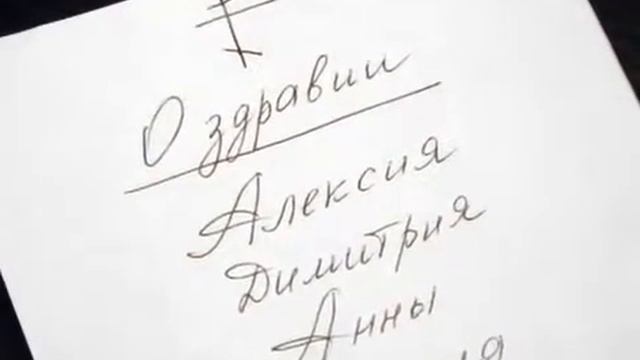 О здравии
Алексия
Димитрия
Анны